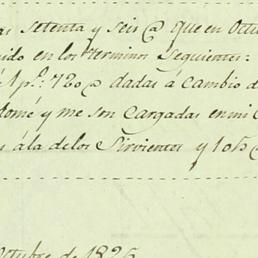 as setenta y seis @ que en Octu
uido en los terminos siguientes:
Apl: 720 @ dadas á cambio d
tomé y me son cargadas en mi C
s á la de los Sirvientes y 105 @
Octubre de 1825